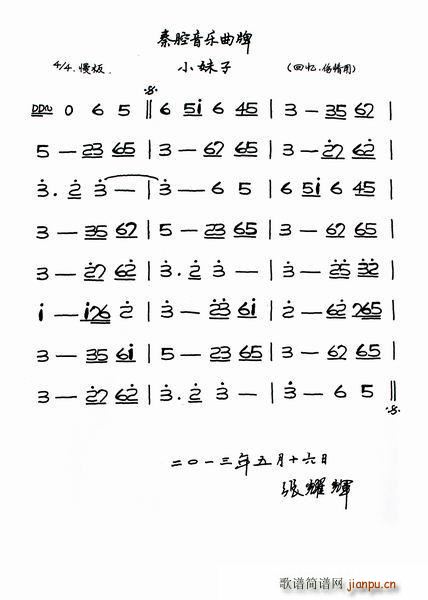 秦腔音乐曲牌
4/4 慢板. 小妹子 (回忆.伤情用)
0 6 5 ‖ 6 5i 6 45 | 3 — 35 62 |
5 — 23 65 | 3 — 62 65 | 3 — 27 62 |
3. 2 3 — | 3 — 6 5 | 6 5i 6 45 |
3 — 35 62 | 5 — 23 65 | 3 — 62 65 |
3 — 27 62 | 3. 2 3 — | 3 — 25 32 |
i — i26 2 | 3 — 23 6i | 2 — 62 265 |
3 — 35 6i | 5 — 23 65 | 3 — 62 65 |
3 — 27 62 | 3. 2 3 — | 3 — 6 5 ‖
二〇一三年五月十六日
张耀辉
歌谱简谱网
jianpu.cn